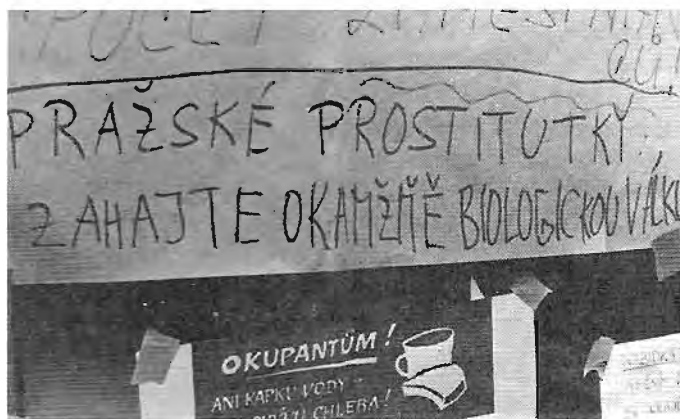 POČET
PRAŽSKÉ PROSTITUTKY
ZAHAJTE OKAMŽITĚ BIOLOGICKOU VÁLKU
OKUPANTŮM!
ANI KAPKU VODY
CHLEBA!